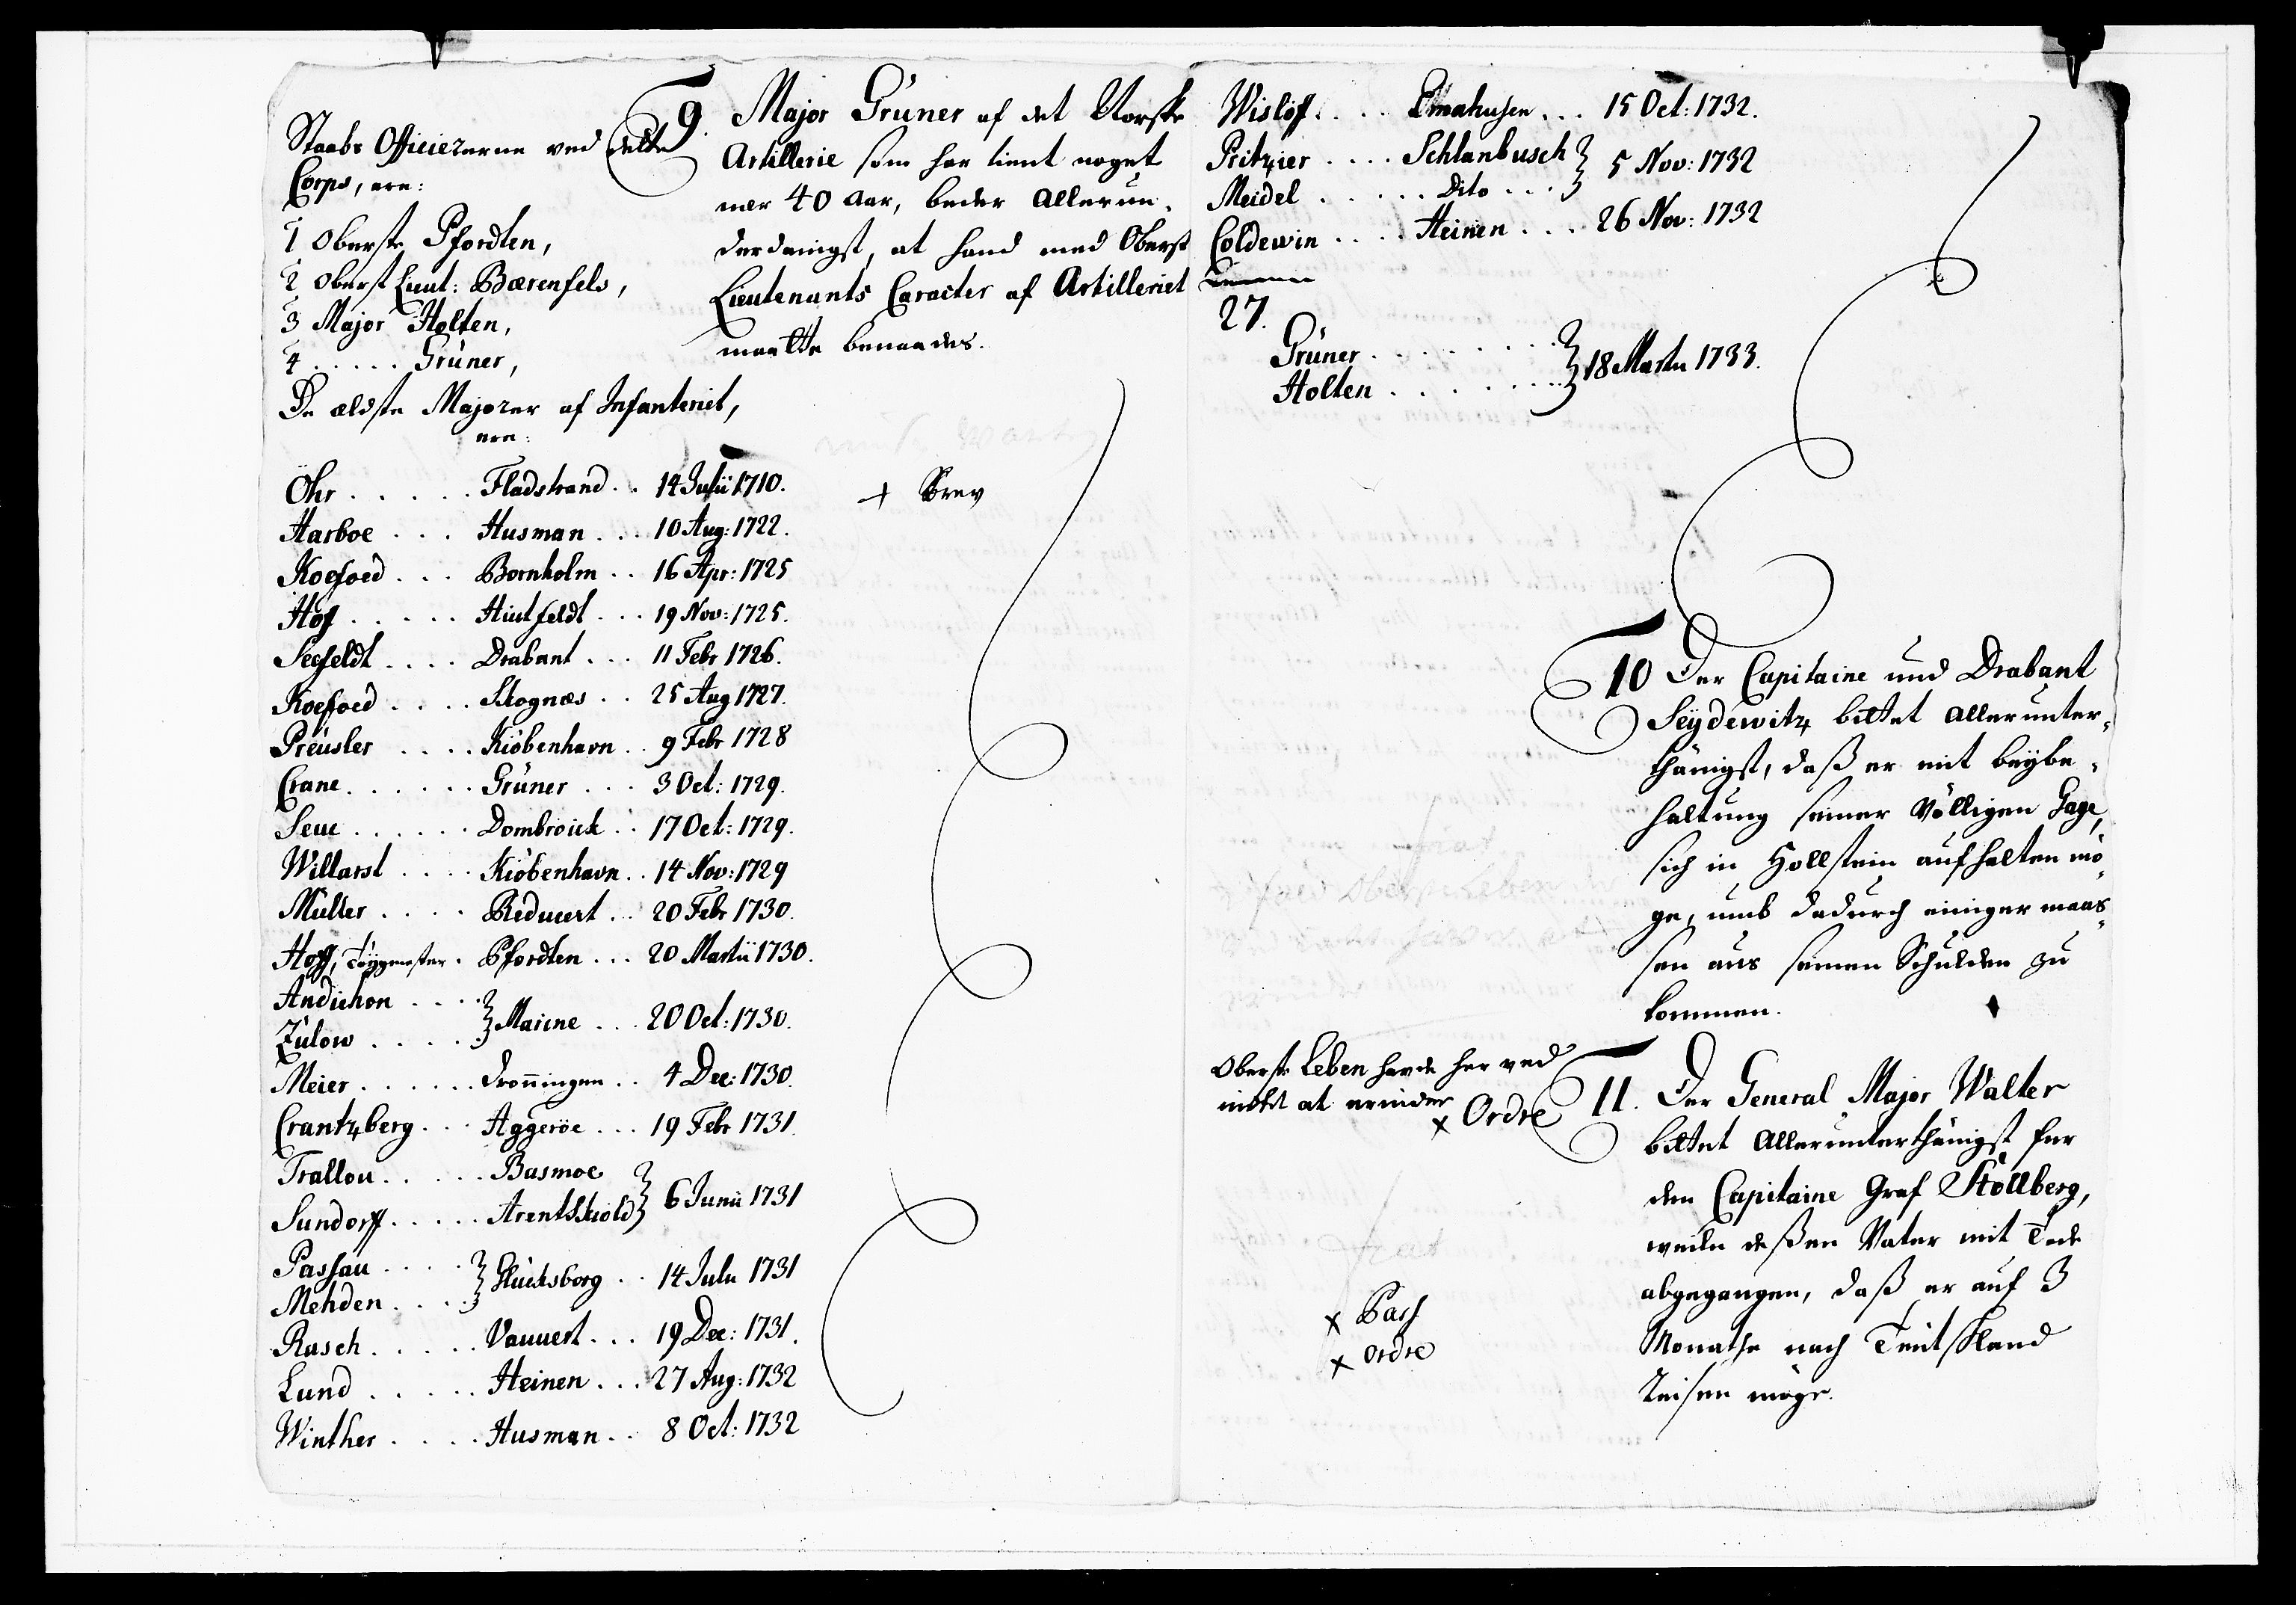 Staabs Officiererne ved dette
Corps, ere:
1 Oberste Pfordten,
2 Oberst Lieut: Bærenfels,
3 Major Holten,
4 ..... Grüner,
De ældste Majorer af Infanteriet,
ere:
Öhr ..... Fladstrand .. 14 Julii 1710.
Harboe ... Husman ... 10 Aug: 1722.
Koefoed ... Bornholm .. 16 Apr: 1725
Hof ..... Hiutfeldt ... 19 Nov: 1725.
Seefeldt .... Drabant ... 11 Febr 1726.
Koefoed .... Skognæs .. 25 Aug 1727.
Preusler .... Kiöbenhavn .. 9 Febr 1728
Crane ...... Grüner ... 3 Oct: 1729.
Seue ...... Dombroick .. 17 Oct: 1729.
Willarst .... Kiöbenhavn .. 14 Nov: 1729
Müller .... Reducert .. 20 Febr 1730.
Hoff, Töygmester . Pfordten ... 20 Martii 1730.
Andichon ....
Zülow ..... Marine ... 20 Oct: 1730.
Meier ...... Dronningen .. 4 Dec: 1730.
Crantzberg ... Aggeröe ... 19 Febr 1731.
Trallou ..... Basmoe
Sundorff ..... Arentskiold 6 Junii 1731
Passau ....
Mehden .... Glücksborg .. 14 Julii 1731
Rasch ..... Vauvert ... 19 Dec: 1731.
Lund ..... Heinen ... 27 Aug: 1732
Winther .... Husman .. 8 Oct: 1732
9. Major Grüner af det Norske
Artillerie som har tient noget
nær 40 Aar, beder Allerun-
derdanigst, at hand med Oberst
Lieutenants Caracter af Artilleriet
maatte benaades.
+ Brev
Wislöff .... Emahusen ... 15 Oct: 1732.
Pritzier .... Schlanbusch
Meidel ...... Dito ... 5 Nov: 1732
Coldewin .... Heinen ... 26 Nov: 1732
27.
Grüner ........
Holten ........ 18 Martii 1733.
10 Der Capitaine und Drabant
Seÿdewitz bittet Allerunter-
thänigst, daß er mit beÿbe-
haltung seiner Völligen Gage,
sich in Hollstein aufhalten mö-
ge, umb dadurch einiger maas-
sen aus seinen Schulden zu
kommen.
Oberste Leben havde her ved
intet at erindre
x Ordre
11. Der General Major Walter
bittet Allerunterthänigst für
den Capitaine Graf Stöllberg,
weiln deßen Vater mit Tode
abgegangen, daß er auf 3
Monathe nach Teutschland
Reisen möge.
x Pass
x ordre